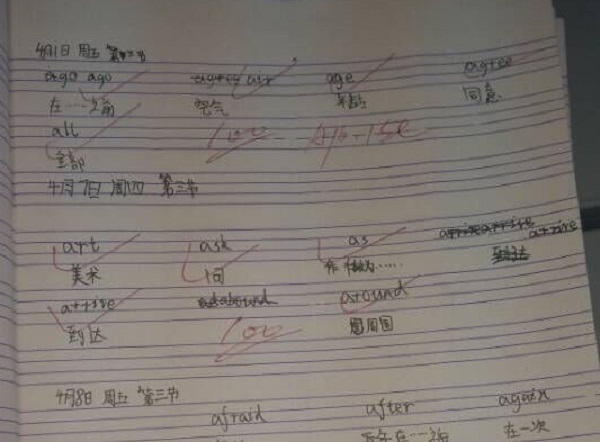 4月1日 周五 第三节
ago ago air age agree
在……之前 空气 年龄 同意
all 100 Apr-1st
全部
4月7日 周四 第三节
art ask as arrive
美术 问 作为…… 到达
arrive around
到达 100 周围
4月8日 周五 第三节
afraid after again
在……之后 在一次